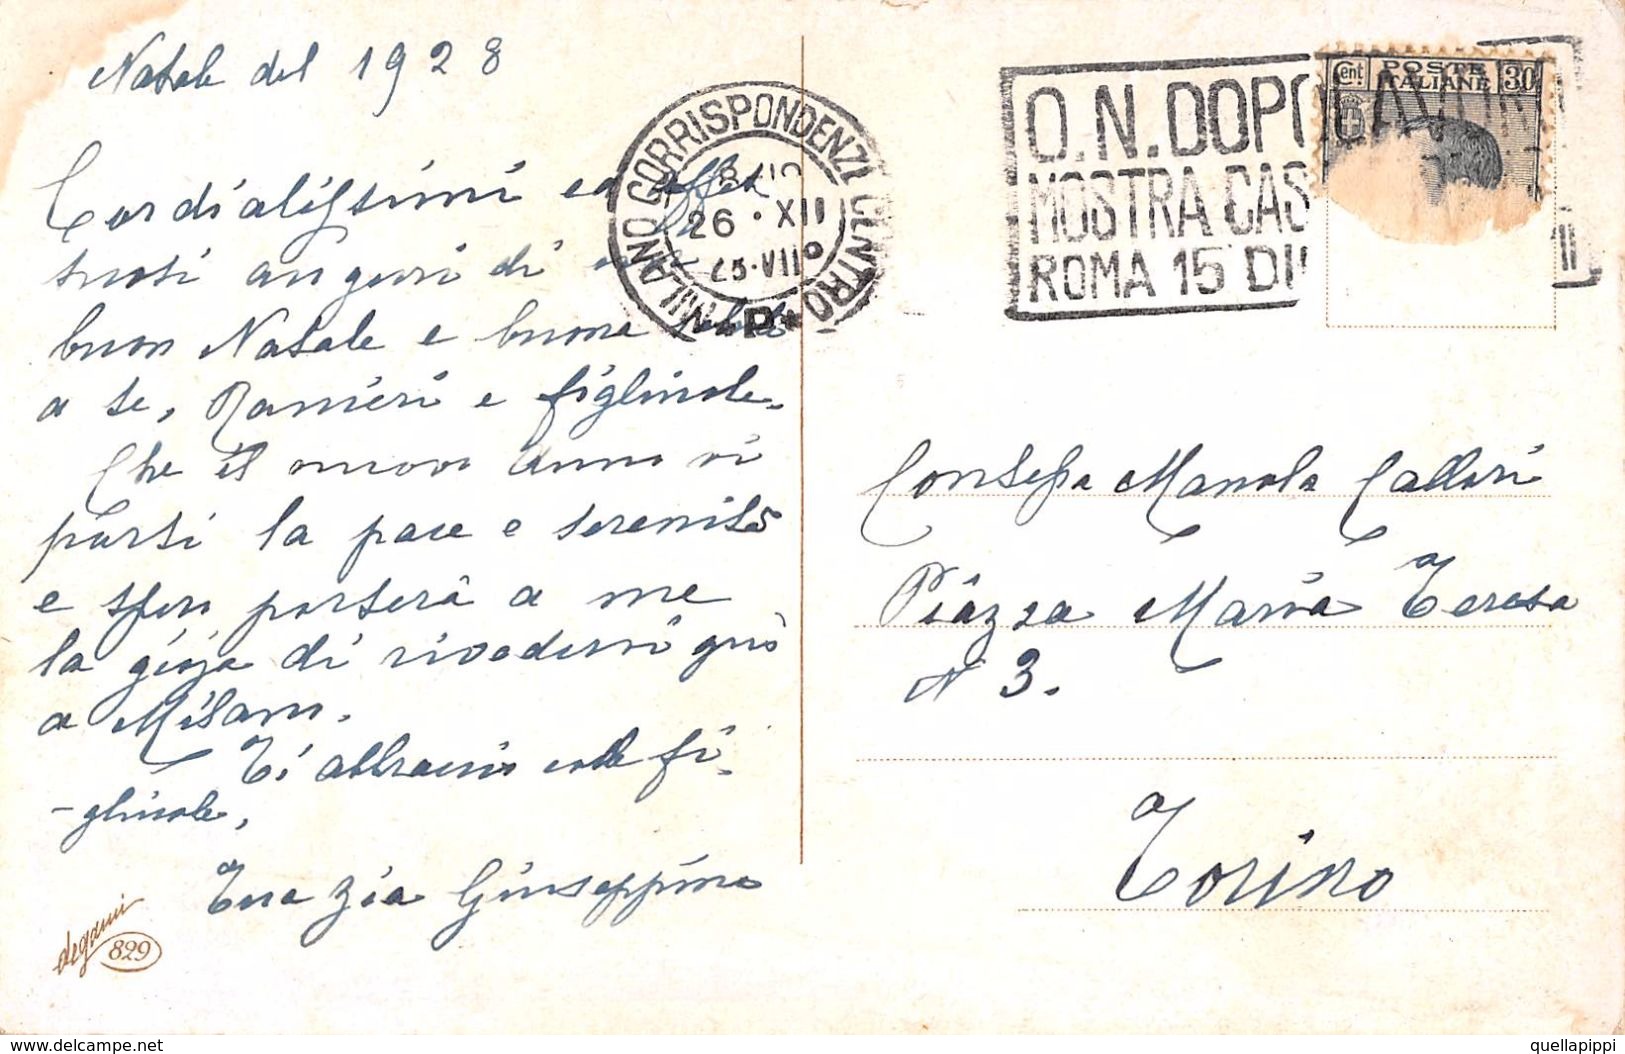 Natale del 1928
Cordialissimi ed affet
tuosi auguri di
buon Natale e buone
a te, Ranieri e figliuole.
Che il nuovo anno vi
porti la pace e serenità
e spero porterà a me
la gioja di rivedervi qui
a Milano.
Ti abbraccio colle fi-
-gliuole,
Tua zia Giuseppina
degami
829
MILANO CORRISPONDENZE CENTRO
26 · XII
P
O.N. DOPOLAVORO
MOSTRA CAS
ROMA 15 DI
II
Cent POSTE ITALIANE 30
Contessa Manola Calleri
Piazza Maria Teresa
N 3.
Torino
delcampe.net
quellapippi